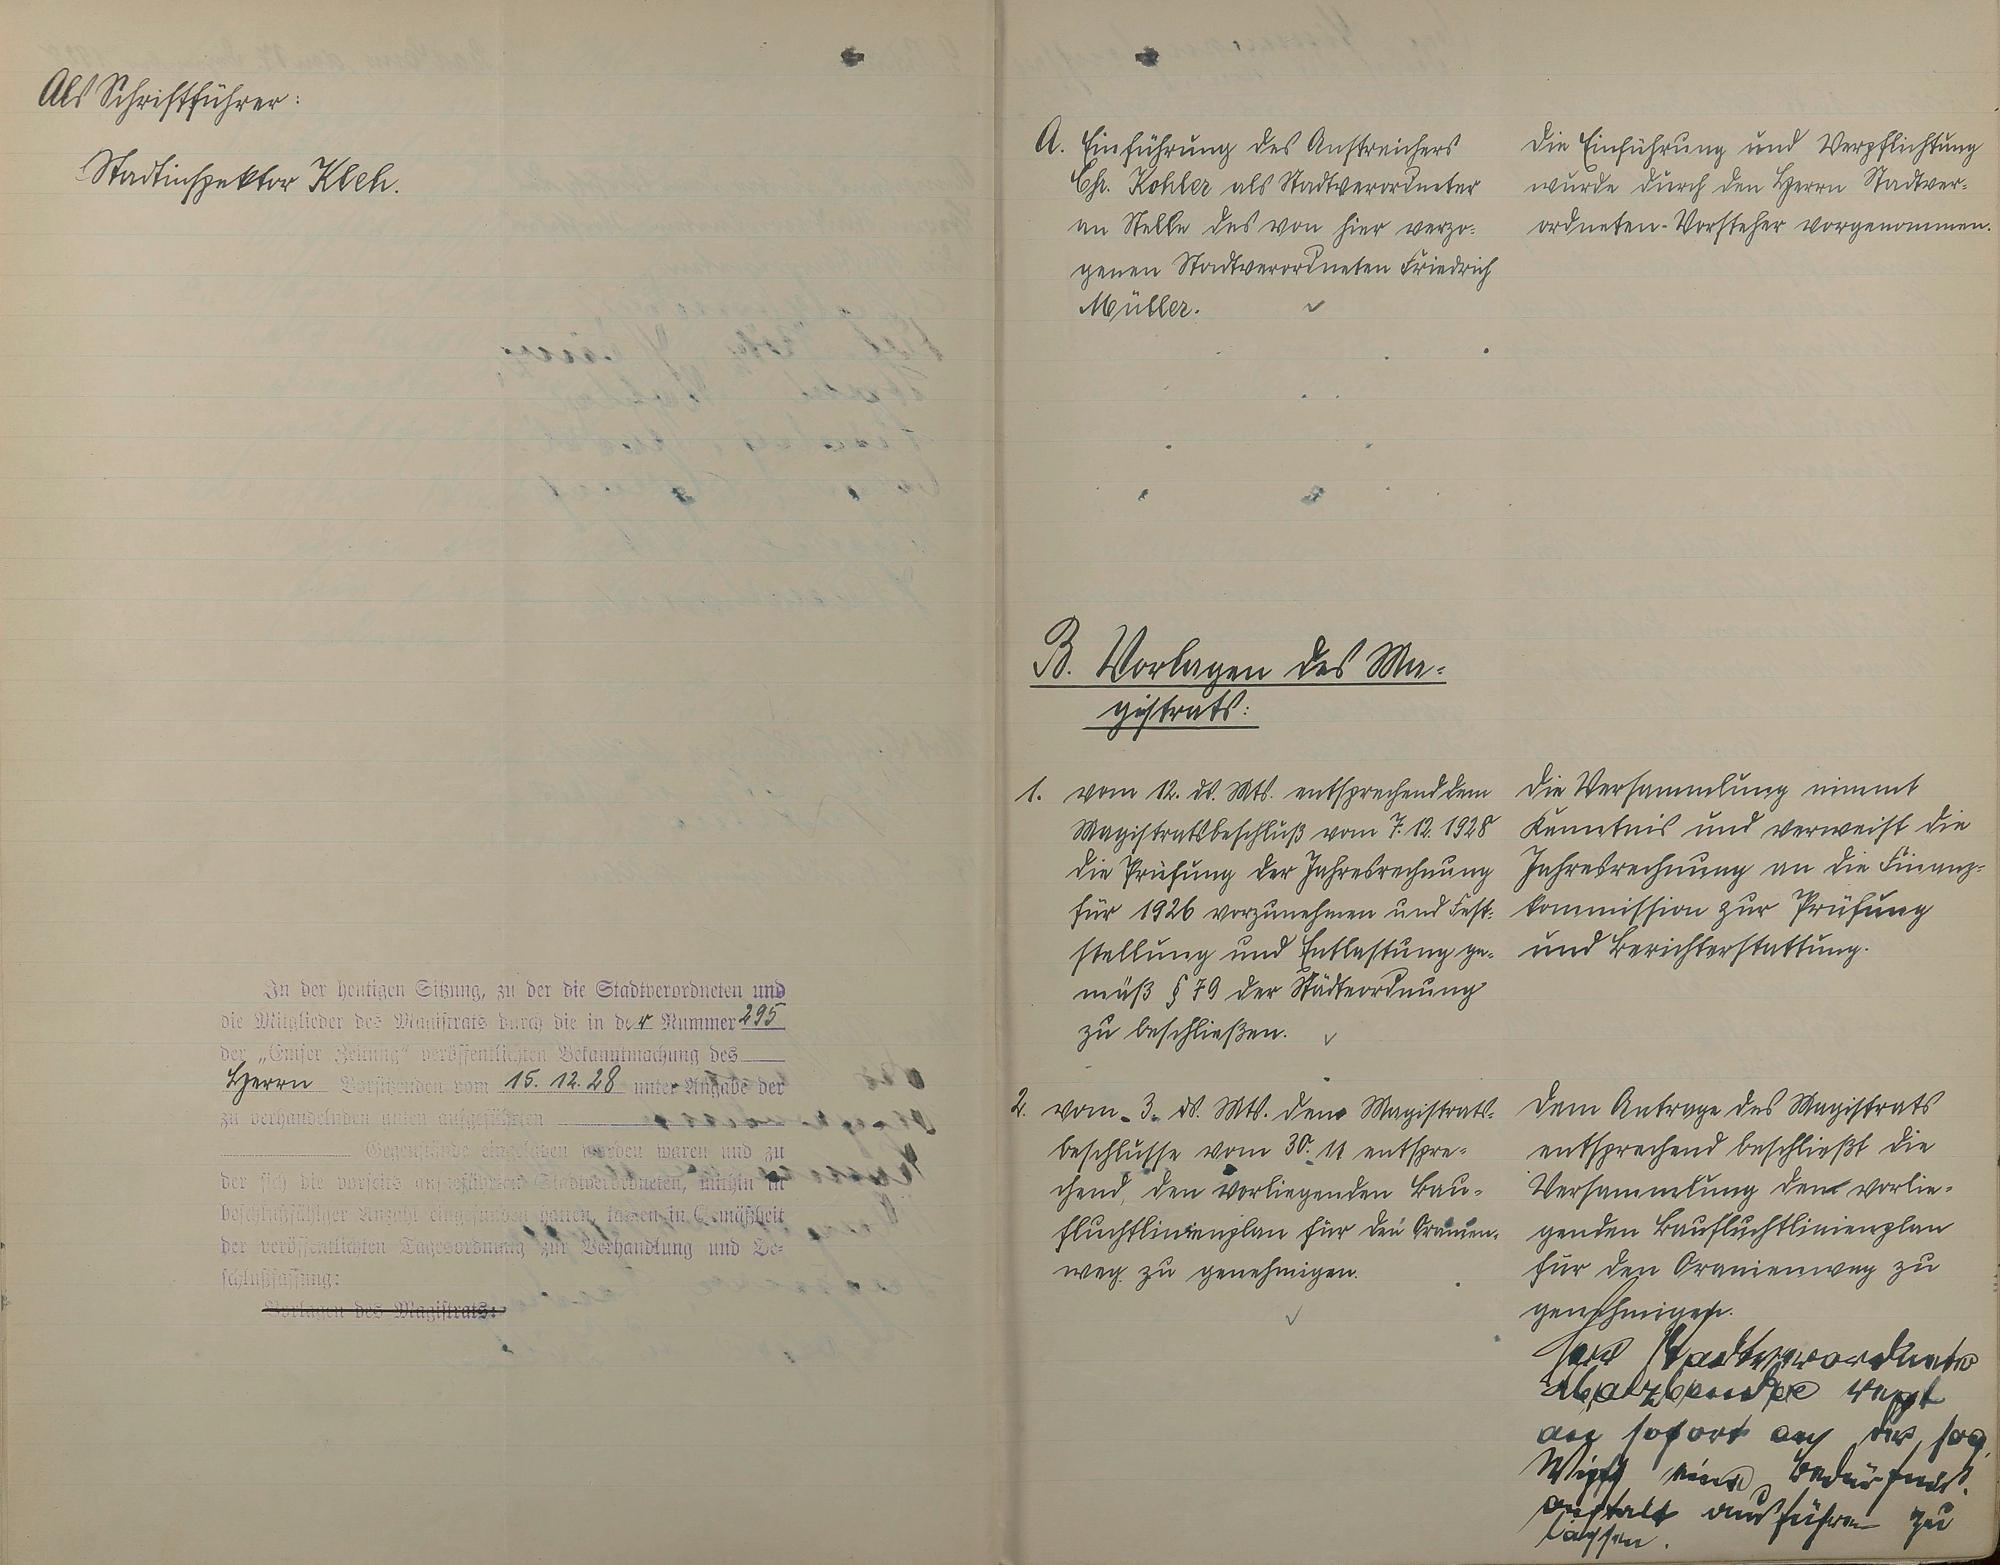 Als Schriftführer:
Stadtinspektor Kleh.
In der heutigen Sitzung, zu der die Stadtverordneten und
die Mitglieder des Magistrats durch die in der Nummer 295
der „Emser Zeitung“ veröffentlichten Bekanntmachung des
Herrn Vorsitzenden vom 15. 12. 28 unter Angabe der
zu verhandelnden unten aufgeführten
Gegenstände eingeladen worden waren und zu
der sich die vorseits aufgeführten Stadtverordneten, mithin in
beschlußfähiger Anzahl eingefunden hatten, kamen in Gemäßheit
der veröffentlichten Tagesordnung zur Verhandlung und Be-
schlußfassung:
Vorlagen des Magistrats:
A. Einführung des Anstreichers
Chr. Kohler als Stadtverordneter
an Stelle des von hier verzo-
genen Stadtverordneten Friedrich
Müller.
Die Einführung und Verpflichtung
wurde durch den Herrn Stadtver-
ordneten-Vorsteher vorgenommen.
B. Vorlagen des Ma-
gistrats:
1. vom 12. ds. Mts. entsprechend dem
Magistratsbeschluß vom 7.12.1928
die Prüfung der Jahresrechnung
für 1926 vorzunehmen und Fest-
stellung und Entlastung ge-
mäß § 79 der Städteordnung
zu beschließen.
Die Versammlung nimmt
Kenntnis und verweist die
Jahresrechnung an die Finanz-
kommission zur Prüfung
und Berichterstattung.
2. vom 3. ds. Mts. dem Magistrats-
beschlusse vom 30. 11 entspre-
chend, den vorliegenden Bau-
fluchtlinienplan für den Oranien-
weg zu genehmigen.
Dem Antrage des Magistrats
entsprechend beschließt die
Versammlung den vorlie-
genden Baufluchtlinienplan
für den Oranienweg zu
genehmigen.
Herr Stadtverordneter
regt
an sofort an der sog.
eine Bedürfnis-
anstalt ausführen zu
lassen.